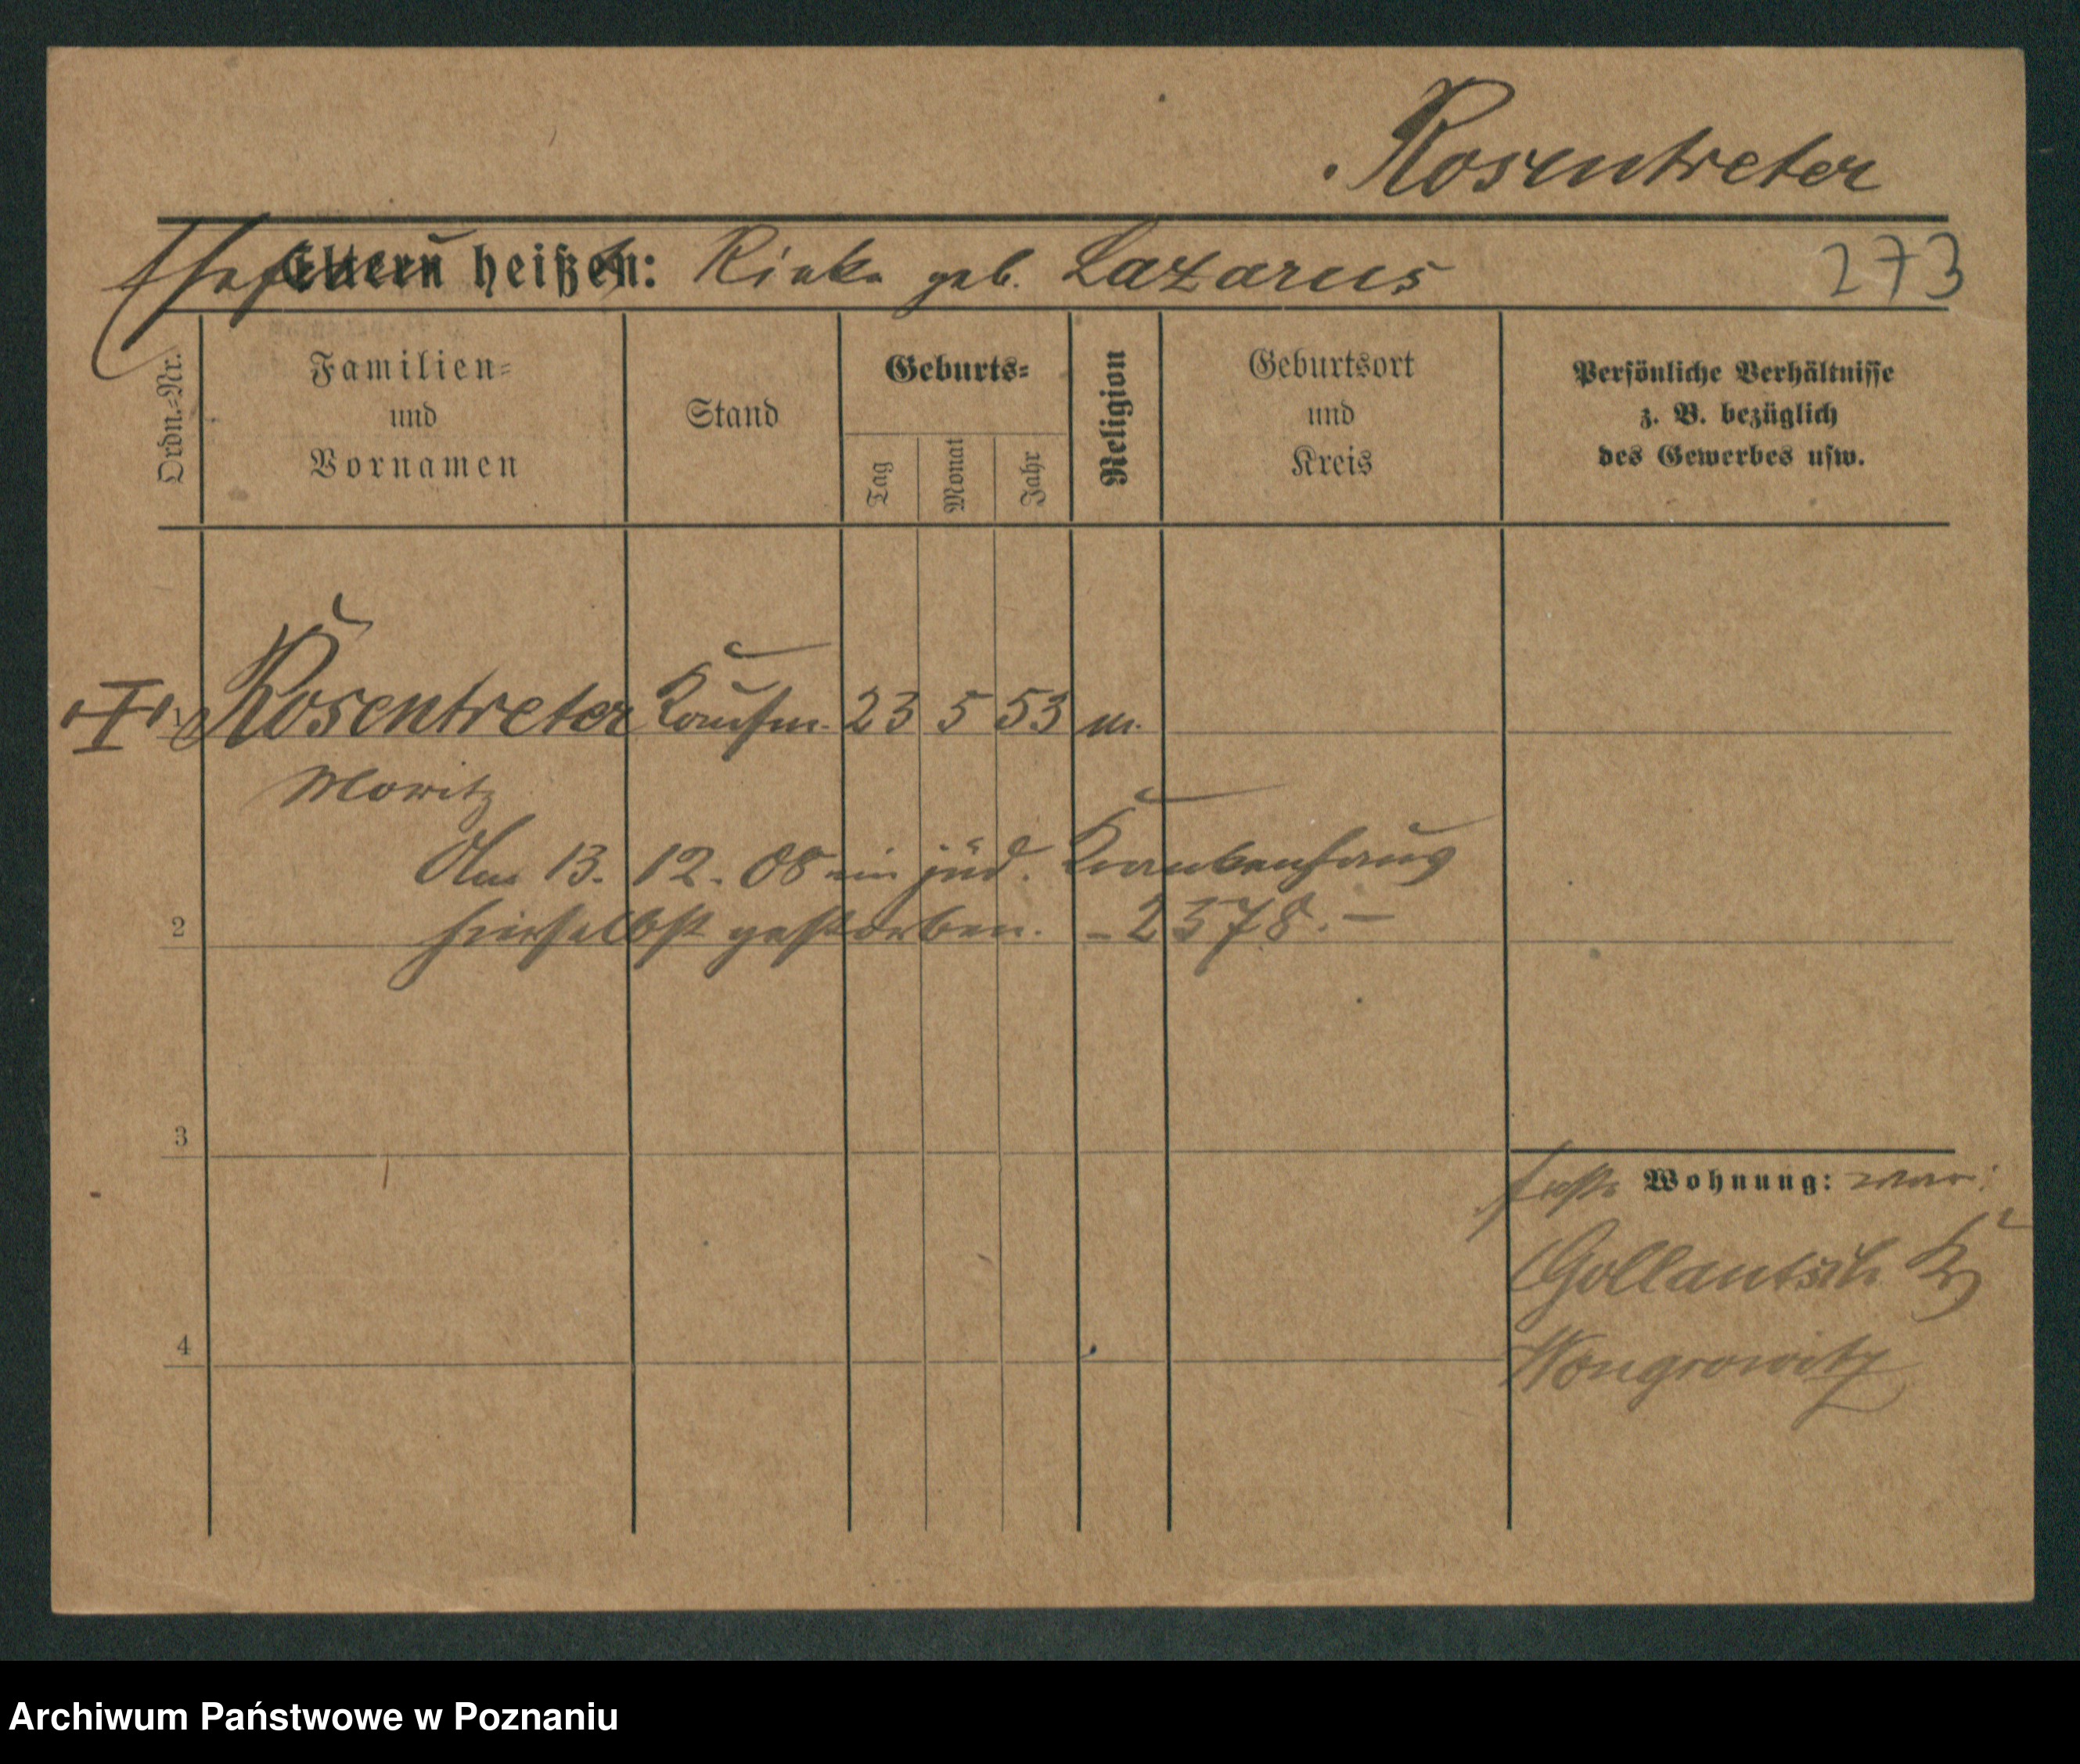 Rosentreter
Ehefrau heißt: Rinka geb. Lazarus
273
Ordn.=Nr.
Familien=
und
Vornamen
Stand
Geburts=
Tag
Monat
Jahr
Religion
Geburtsort
und
Kreis
Persönliche Verhältnisse
z. B. bezüglich
des Gewerbes usw.
Rosentreter Kaufm. 23 5 53 m.
Moritz
Am 13. 12. 08 im jüd. Krankenhaus
2
hierselbst gestorben. - 2578. -
3
Wohnung: war:
Gollantsch Kr
4
Wongrowitz
Archiwum Państwowe w Poznaniu